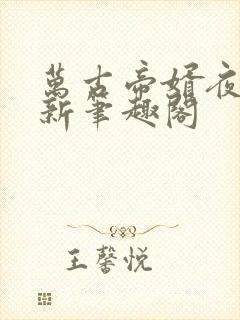 萬古帝婿夜
新筆趣閣
王馨悅